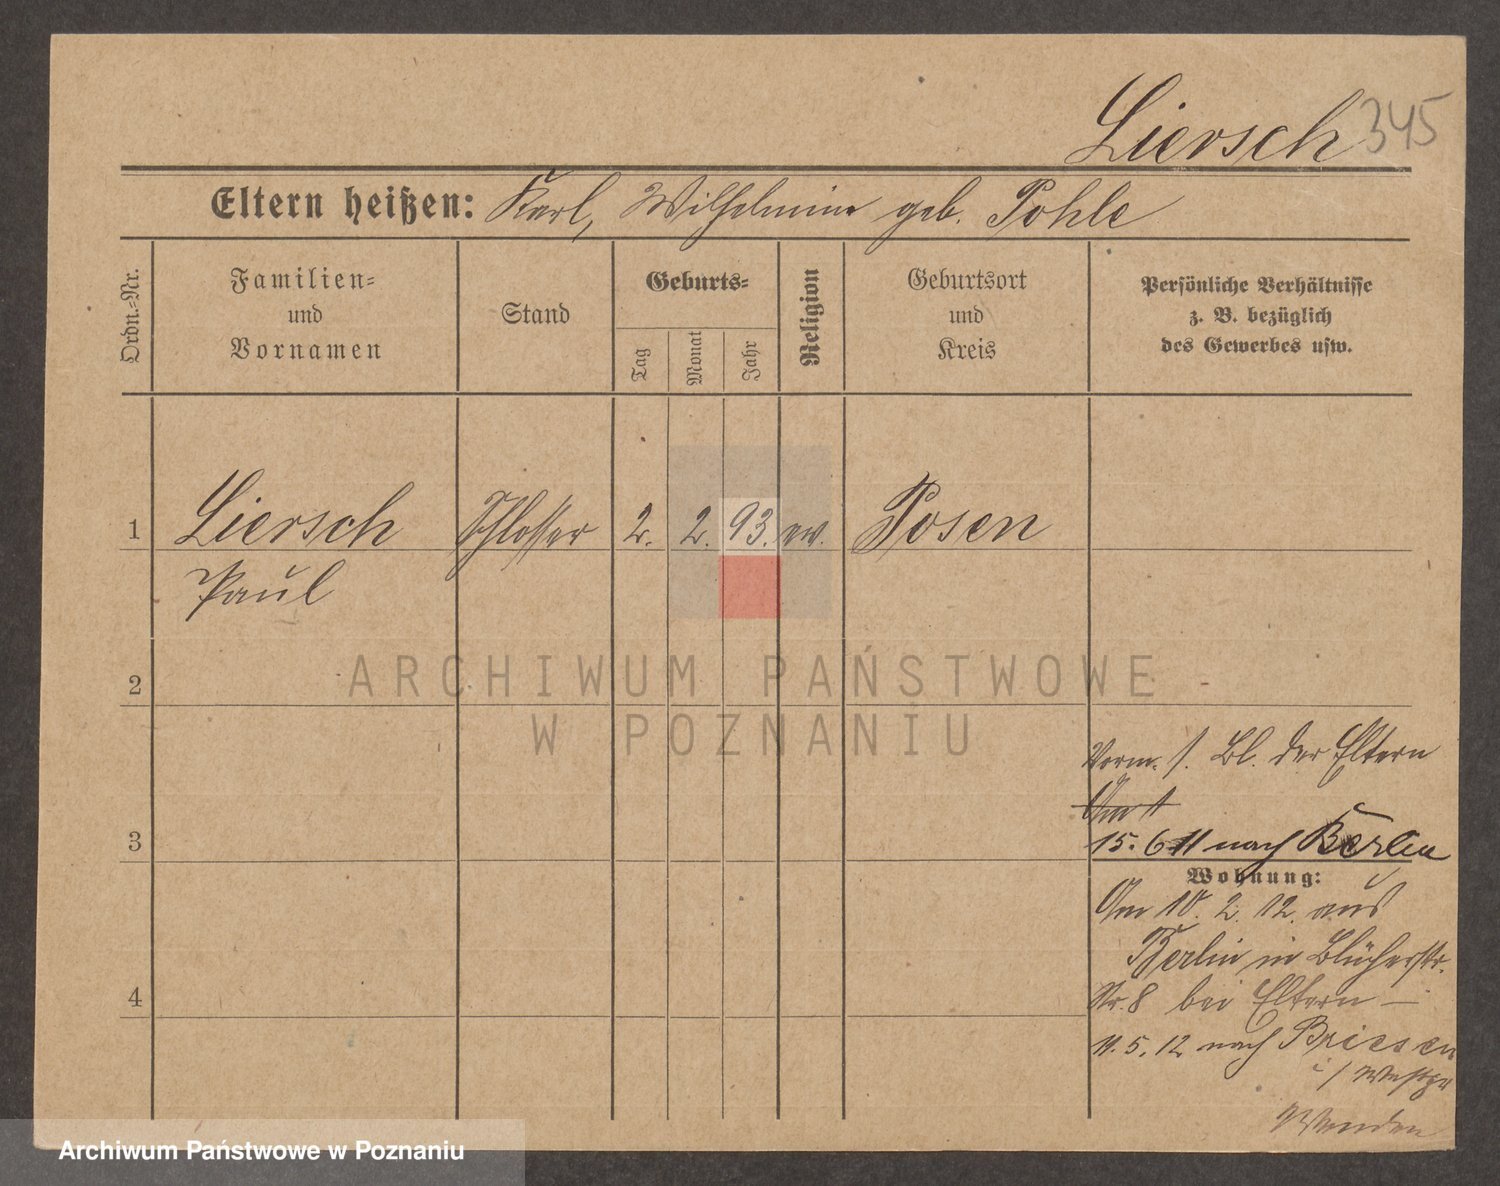 Liersch 345
Eltern heißen: Karl, Wilhelmine geb. Pohle
Ordn.-Nr.
Familien-
und
Vornamen
Stand
Geburts-
Tag
Monat
Jahr
Religion
Geburtsort
und
Kreis
Persönliche Verhältnisse
z. B. bezüglich
des Gewerbes usw.
1 Liersch Schlosser 2. 2. 93. ev. Posen
Paul
2
3
4
Vorm. s. Bl. der Eltern
Am
15. 6 11 nach Berlin
Wohnung:
Am 10. 2. 12. aus
Berlin in Blücherstr.
Nr. 8 bei Eltern —
11. 5. 12 nach Briesen
i/ Westpr
ARCHIWUM PAŃSTWOWE
W POZNANIU
Archiwum Państwowe w Poznaniu